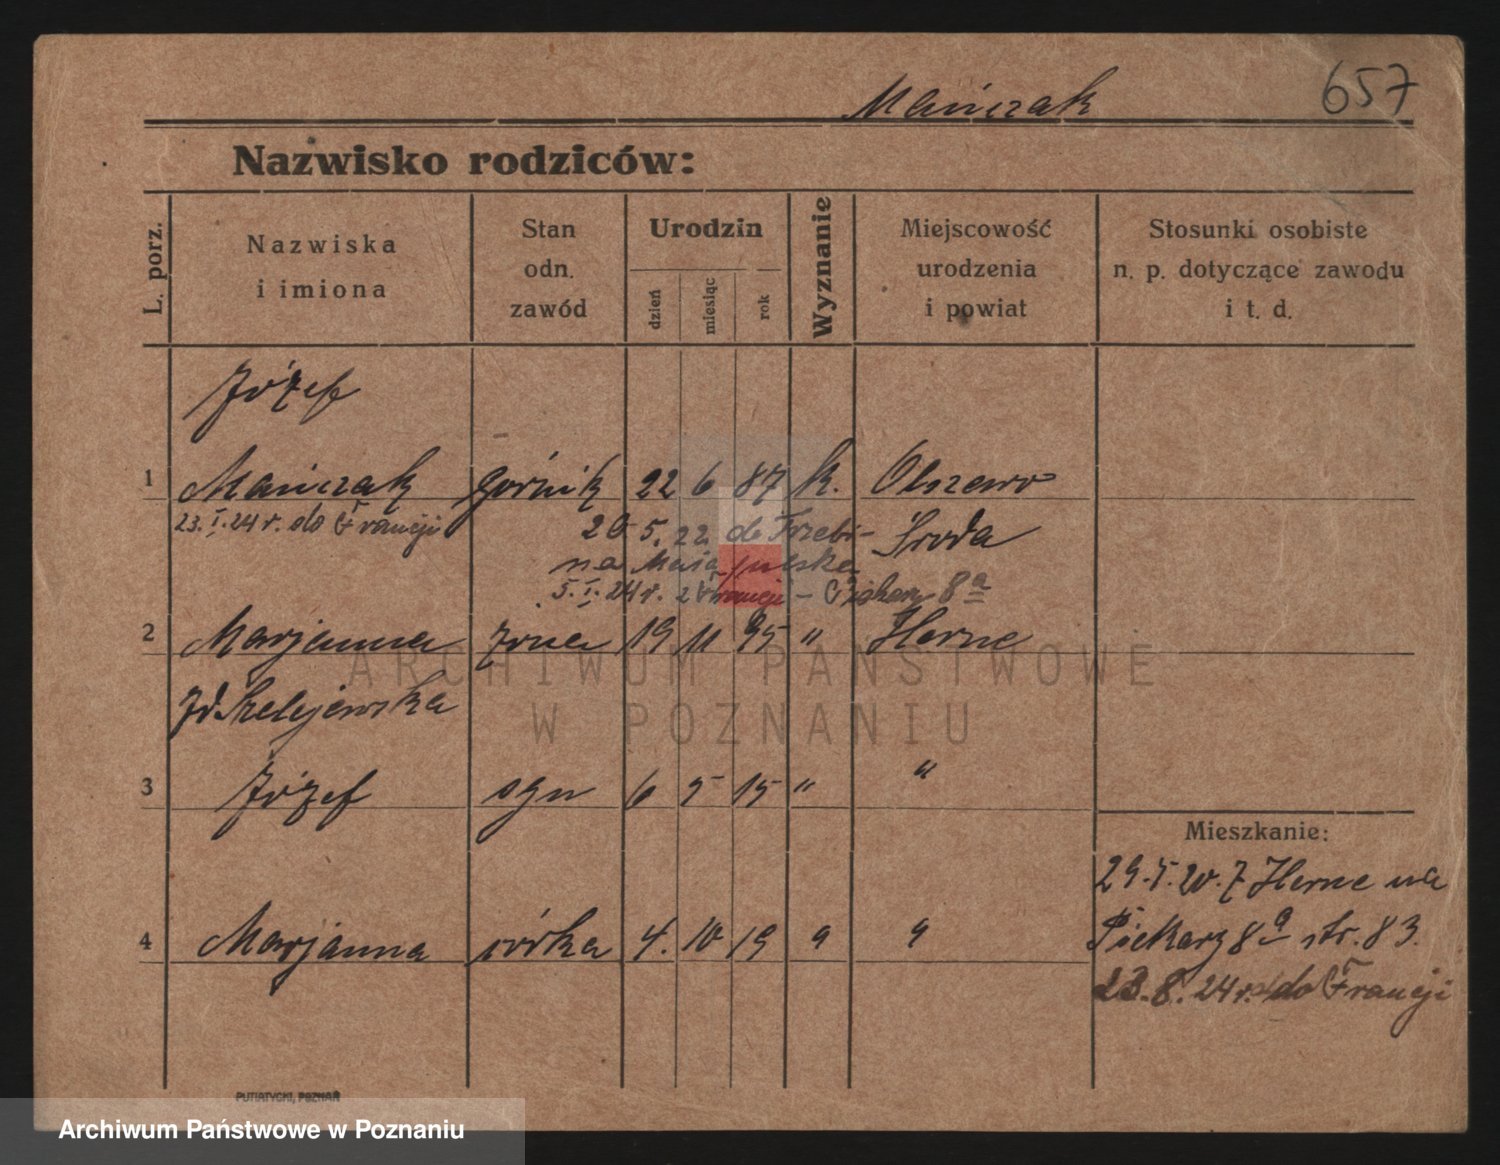 Mańczak 657
Nazwisko rodziców:
L. porz.
Nazwiska
i imiona
Stan
odn.
zawód
Urodzin
dzień
miesiąc
rok
Wyznanie
Miejscowość
urodzenia
i powiat
Stosunki osobiste
n. p. dotyczące zawodu
i t. d.
Józef
1 Mańczak górnik 22 6 87 k. Olszewo
23. I. 24 r. do Francji
20 5. 22 do Trzebi-
na Małopolska
Środa
5. I. 24 r. z Francji – Piekary 8a
2 Marjanna żona 19 11 95 " Herne
zd. Szelejewska
3 Józef syn 6 5 15 " "
Mieszkanie:
29. 5. 20. z Herne na
4 Marjanna córka 4. 10 19 " "
Piekary 8a str. 83.
23. 8. 24 r. do Francji
PUTIATYCKI, POZNAŃ
ARCHIWUM PAŃSTWOWE
W POZNANIU
Archiwum Państwowe w Poznaniu